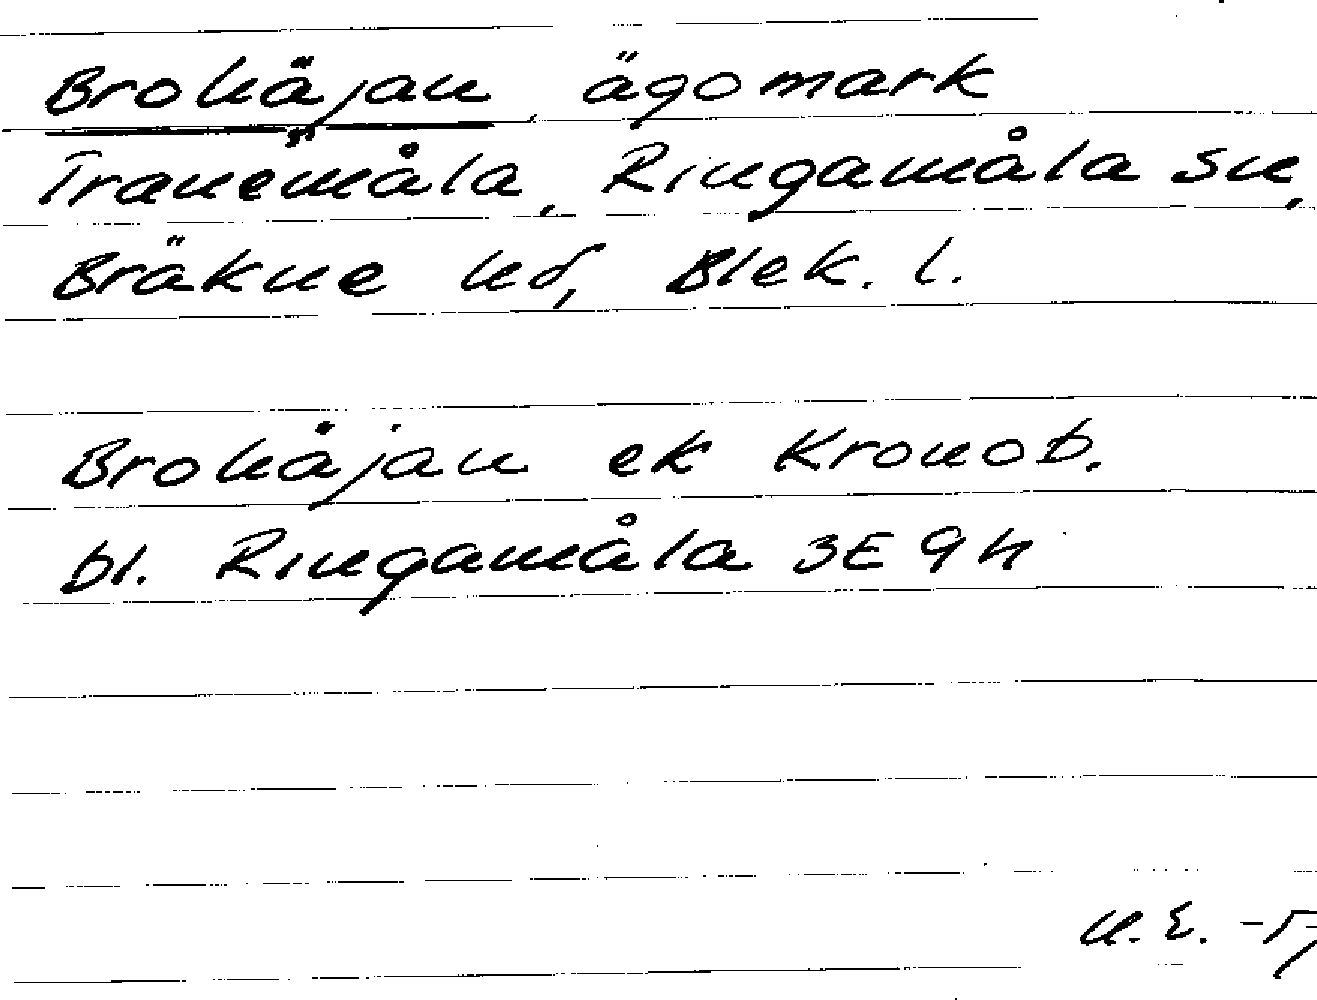 Brohäjan, ägomark
Tranemåla, Ringamåla sn,
Bräkne hd, Blek. l.
Brohäjan ek Kronob.
bl. Ringamåla 3E 9h